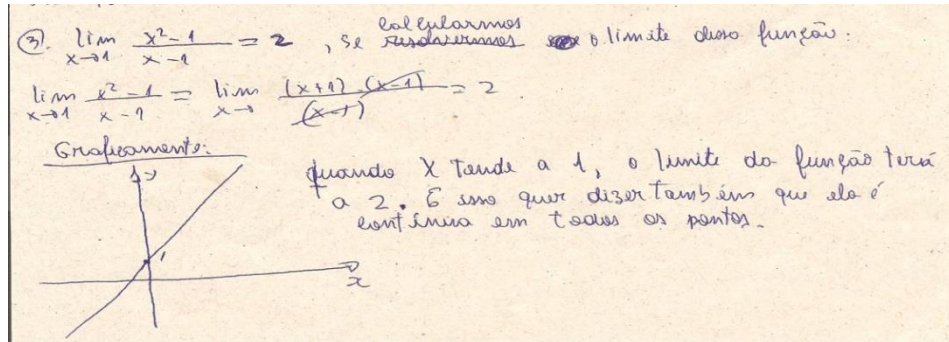 ③. lim x→1 x²-1 / x-1 = 2 , se calcularmos o limite desso função.
lim x→1 x²-1 / x-1 = lim x→ (x+1).(x-1) / (x-1) = 2
Graficamente:
y
quando x tende a 1, o limite da função terá
a 2. E isso quer dizer também que ela é
contínua em todos os pontos.
1
x